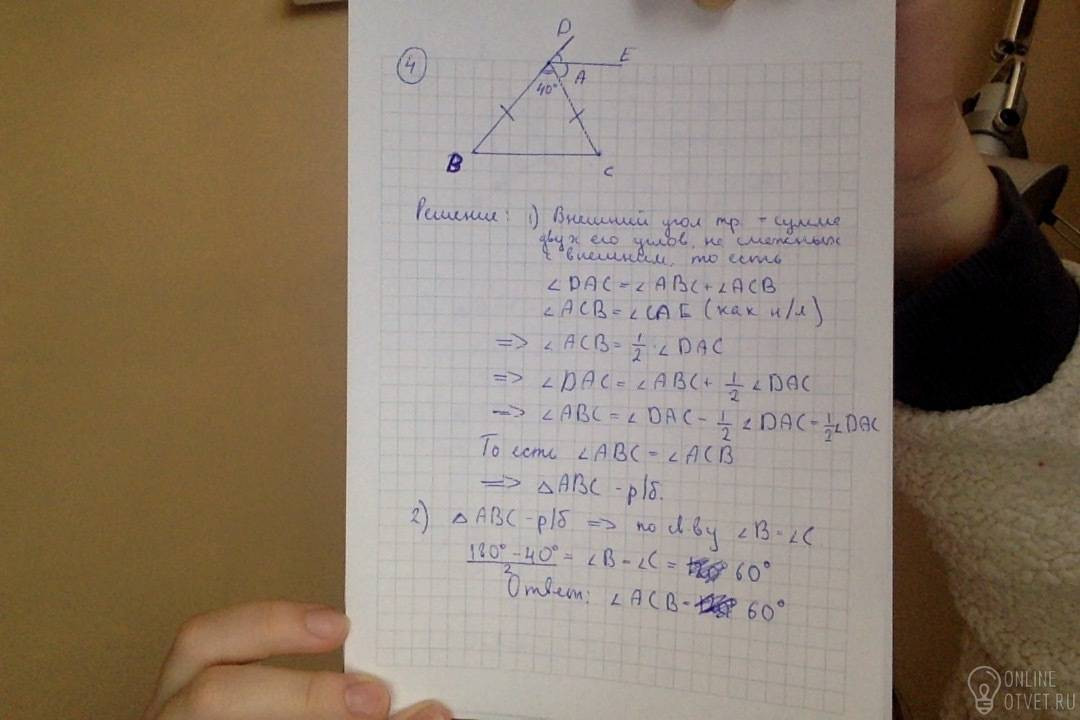 4
D
E
A
40°
B
C
Решение: 1) Внешний угол тр. - сумме
двух его углов, не смежных
с внешним, то есть
∠DAC = ∠ABC + ∠ACB
∠ACB = ∠CAE (как н/л)
=> ∠ACB = 1/2 · ∠DAC
=> ∠DAC = ∠ABC + 1/2 ∠DAC
=> ∠ABC = ∠DAC - 1/2 ∠DAC = 1/2 ∠DAC
То есть ∠ABC = ∠ACB
=> △ABC - р/б.
2) △ABC - р/б => по св-ву ∠B = ∠C
(180° - 40°)/2 = ∠B = ∠C = 60°
Ответ: ∠ACB = 60°
ONLINE
OTVET.RU